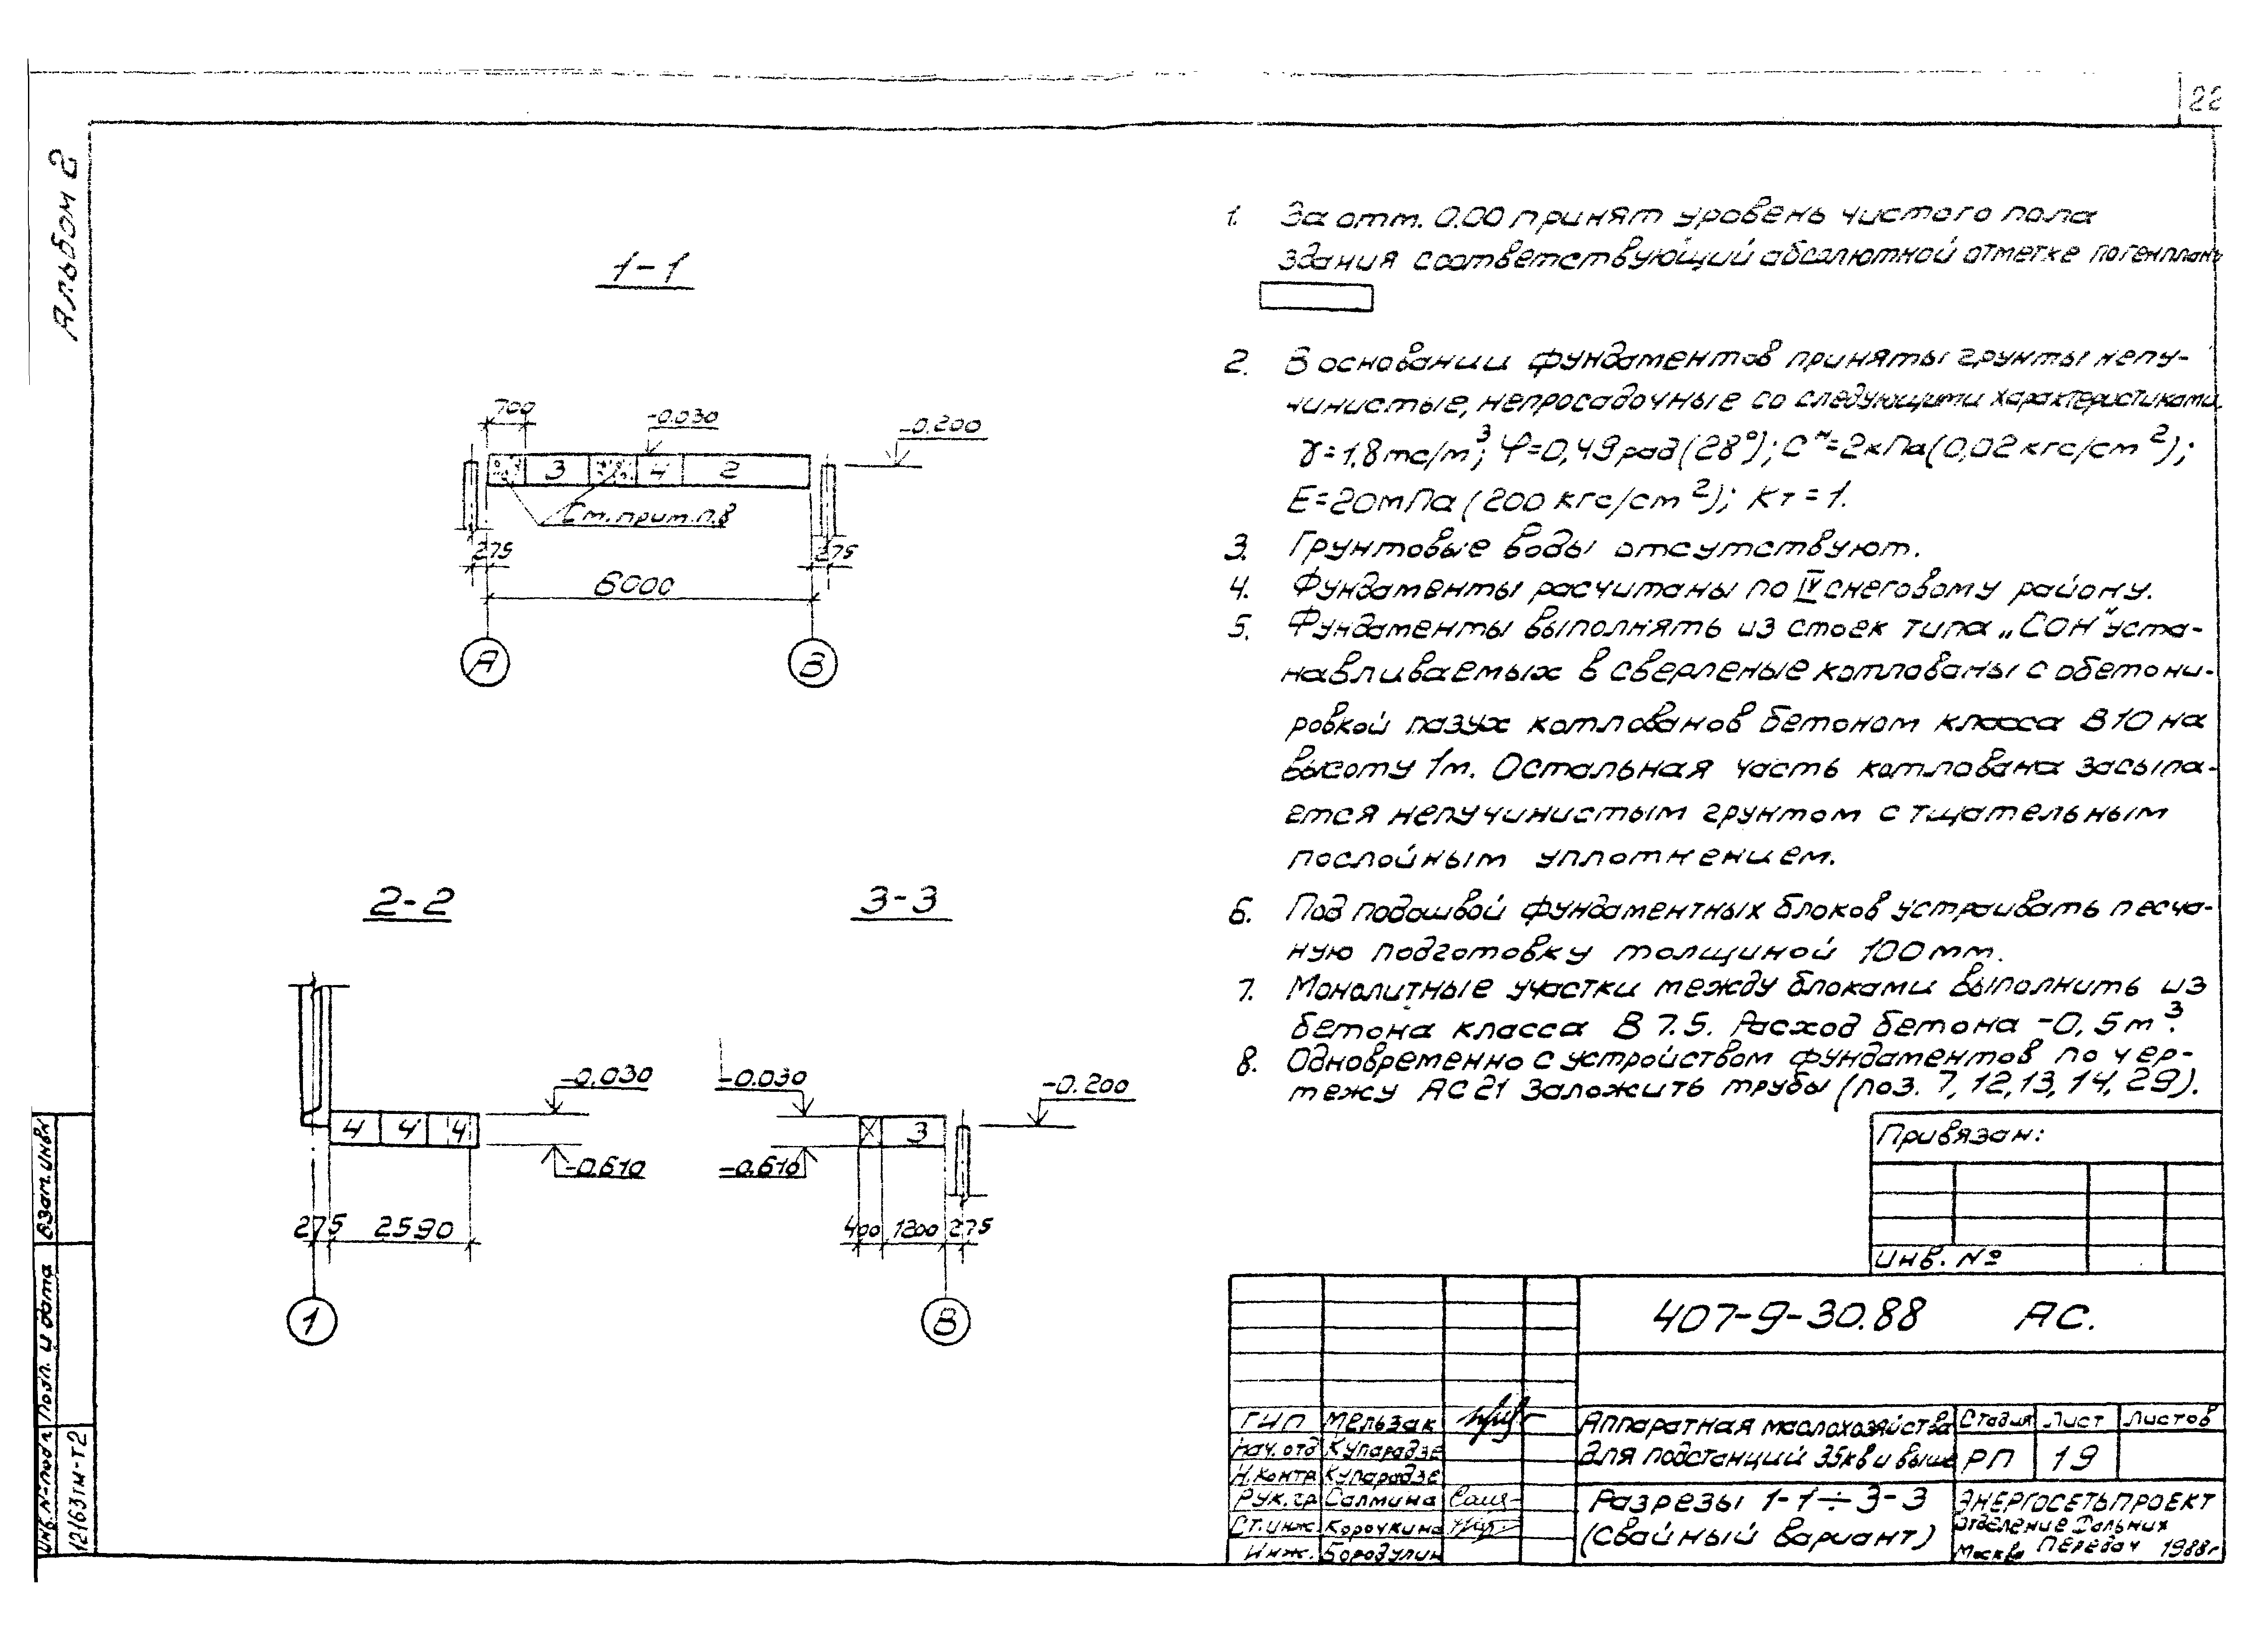 22
Альбом 2
1-1
700
-0.030
-0.200
3
4
2
См. прим. п. 8
275
275
6000
А
В
2-2
-0.030
4
4
4
-0.610
275
2590
1
3-3
-0.030
-0.200
3
-0.610
400
1200
275
В
1. За отм. 0.00 принят уровень чистого пола
здания соответствующий абсолютной отметке по генплану
2. В основании фундаментов приняты грунты непу-
чинистые, непросадочные со следующими характеристиками
γ=1,8тс/м³; φ=0,49рад(28°); Сᴴ=2кПа(0,02кгс/см²);
Е=20мПа(200кгс/см²); Кт=1.
3. Грунтовые воды отсутствуют.
4. Фундаменты расчитаны по IV снеговому району.
5. Фундаменты выполнять из стоек типа „СОН" уста-
навливаемых в сверленые котлованы с обетони-
ровкой пазух котлованов бетоном класса В10 на
высоту 1м. Остальная часть котлована засыпа-
ется непучинистым грунтом с тщательным
послойным уплотнением.
6. Под подошвой фундаментных блоков устраивать песча-
ную подготовку толщиной 100мм.
7. Монолитные участки между блоками выполнить из
бетона класса В 7.5. Расход бетона -0,5м³.
8. Одновременно с устройством фундаментов по чер-
тежу АС21 заложить трубы (поз. 7, 12, 13, 14, 29).
Привязан:
Инв. №
407-9-30.88 АС.
ГИП Мельзак
Нач. отд Купарадзе
Н.контр Купарадзе
Рук. гр Салмина
Ст.инж. Корочкина
Инж. Бородулин
Аппаратная маслохозяйства
для подстанций 35кв и выше
Стадия Лист Листов
РП 19
Разрезы 1-1÷3-3
(свайный вариант)
ЭНЕРГОСЕТЬПРОЕКТ
Отделение Дальних
Передач
Москва 1988г
Взам. инв.
Подп. и дата
Инв. N-подл
12163тм-т2